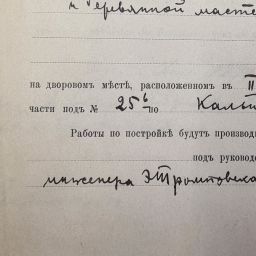 и деревянной масте
на дворовомъ мѣстѣ, расположенномъ въ II
части подъ № 25б по Кальи
Работы по постройкѣ будутъ производ
подъ руковод
инженера Э Тромповска